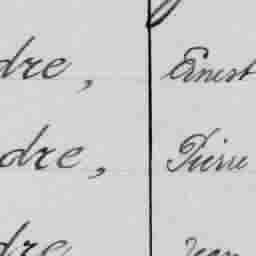 dre, Ernest
dre, Pierre
dre Jean